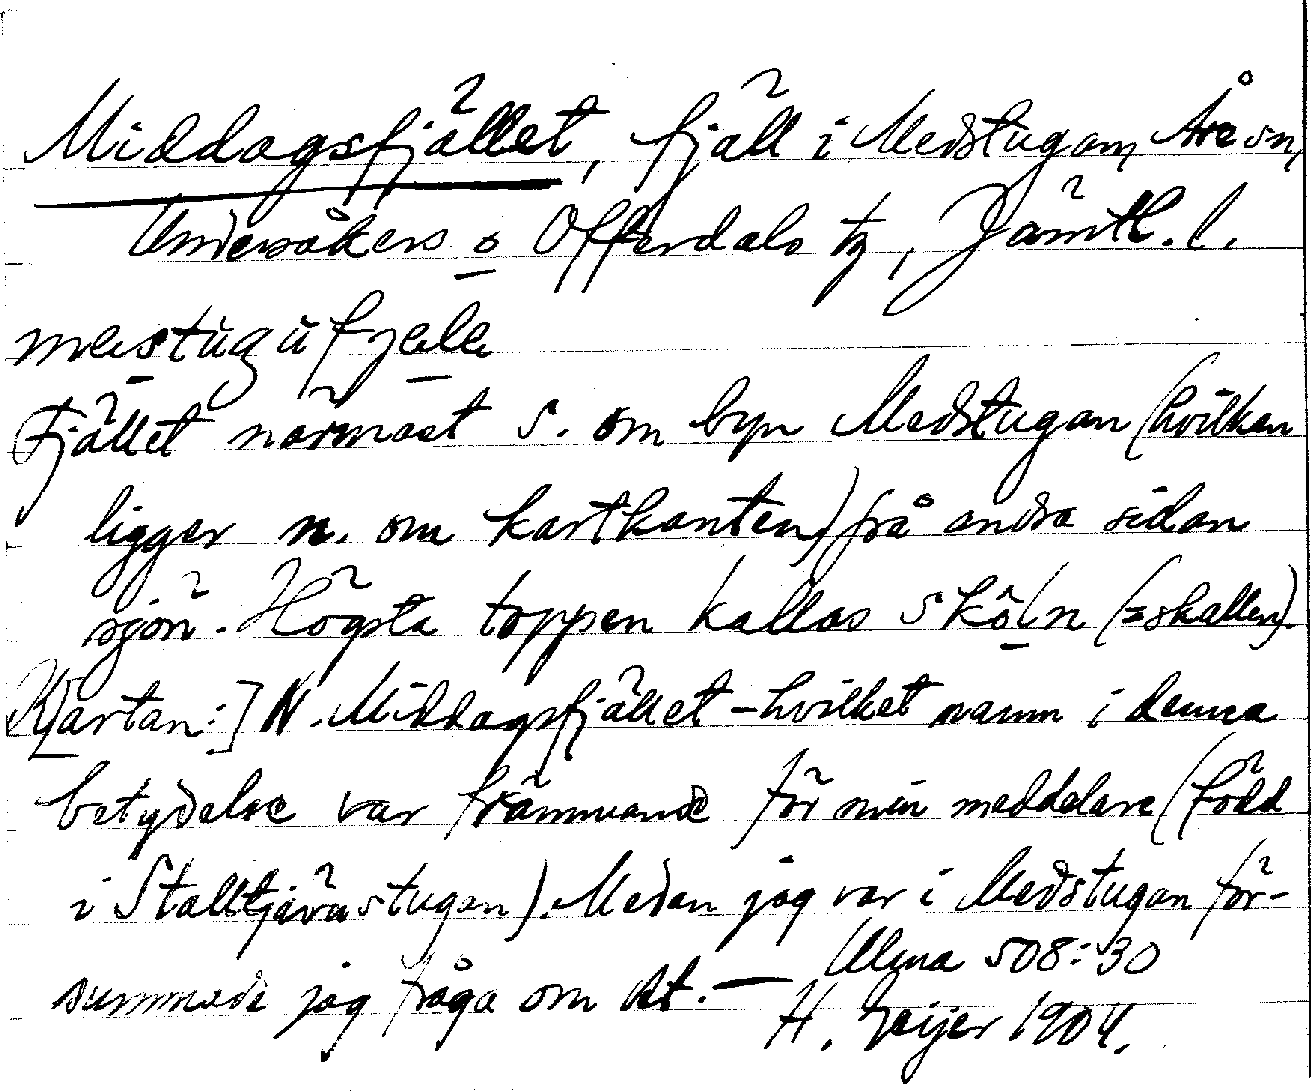 Middagsfjället, fjäll i Medstugan, Åre sn,
Undersåkers o Offerdals tg, Jämtl. l.
mestugufjelle
Fjället närmast S. om byn Medstugan (hvilken
ligger n. om kartkanten) från andra sidan
sjön. Högsta toppen kallas Sköln (= skallen).
Kartan:] N. Middagsfjället – hvilket namn i denna
betydelse var främmande för min meddelare (född
i Stalltjärnstugan). Medan jag var i Medstugan för-
summade jag fråga om det. —
Ulma 508:30
H. Geijer 1904.